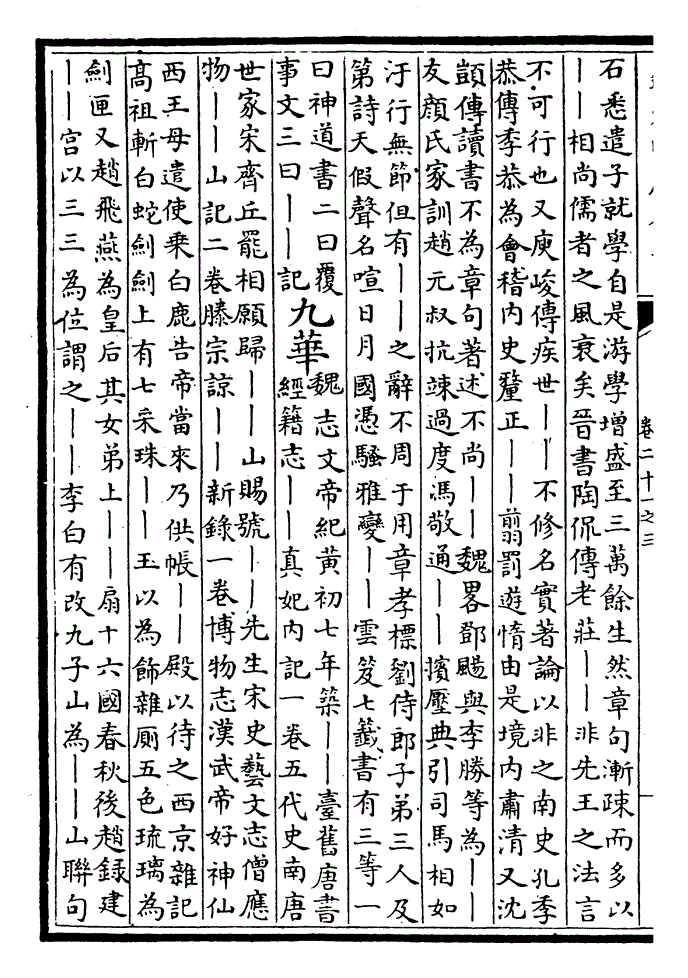 石悉遣子就學自是游學增盛至三萬餘生然章句漸疎而多以
——相尚儒者之風衰矣晉書陶侃傳老莊——非先王之法言
不可行也又庾峻傳疾世——不修名實著論以非之南史孔季
恭傳季恭為會稽内史釐正——翦罰遊惰由是境内肅清又沈
顗傳讀書不為章句著述不尚——魏畧鄧颺與李勝等為——
友顔氏家訓趙元叔抗竦過度馮敬通——擯壓典引司馬相如
汙行無節但有——之辭不周于用章孝標劉侍郎子弟三人及
第詩天假聲名喧日月國憑騷雅變——雲笈七籤書有三等一
曰神道書二曰覆
事文三曰——記
九華
魏志文帝紀黄初七年築——臺舊唐書
經籍志——真妃内記一卷五代史南唐
世家宋齊丘罷相願歸——山賜號——先生宋史藝文志僧應
物——山記二卷滕宗諒——新錄一卷博物志漢武帝好神仙
西王母遣使乗白鹿告帝當來乃供帳——殿以待之西京雜記
髙祖斬白蛇劍劍上有七采珠——玉以為飾雜厠五色琉璃為
劍匣又趙飛燕為皇后其女弟上——扇十六國春秋後趙錄建
——宫以三三為位謂之——李白有改九子山為——山聯句
卷二十一之三